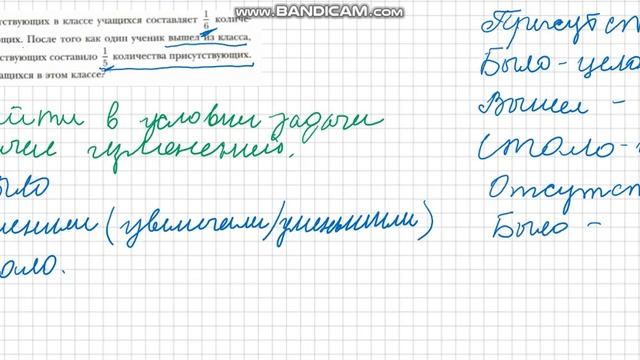 www.BANDICAM.com
тствующих в классе учащихся составляет 1/6 количе-
ющих. После того как один ученик вышел из класса,
тствующих составило 1/5 количества присутствующих.
ащихся в этом классе?
йти в условии задачи
изменению.
ыло
(увеличили/уменьшили)
ало.
Присутст
Было - цела
Вышел -
Стало -
Отсутст
Было -